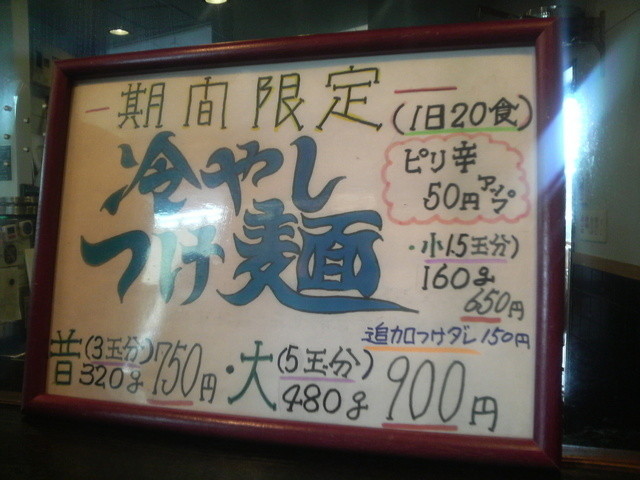 期間限定
(1日20食)
冷やし
つけ麺
ピリ辛
50円アップ
・小1.5玉分)
160g
650円
追加つけダレ150円
普(3玉分)
320g
750円
・大(5玉分)
480g
900円